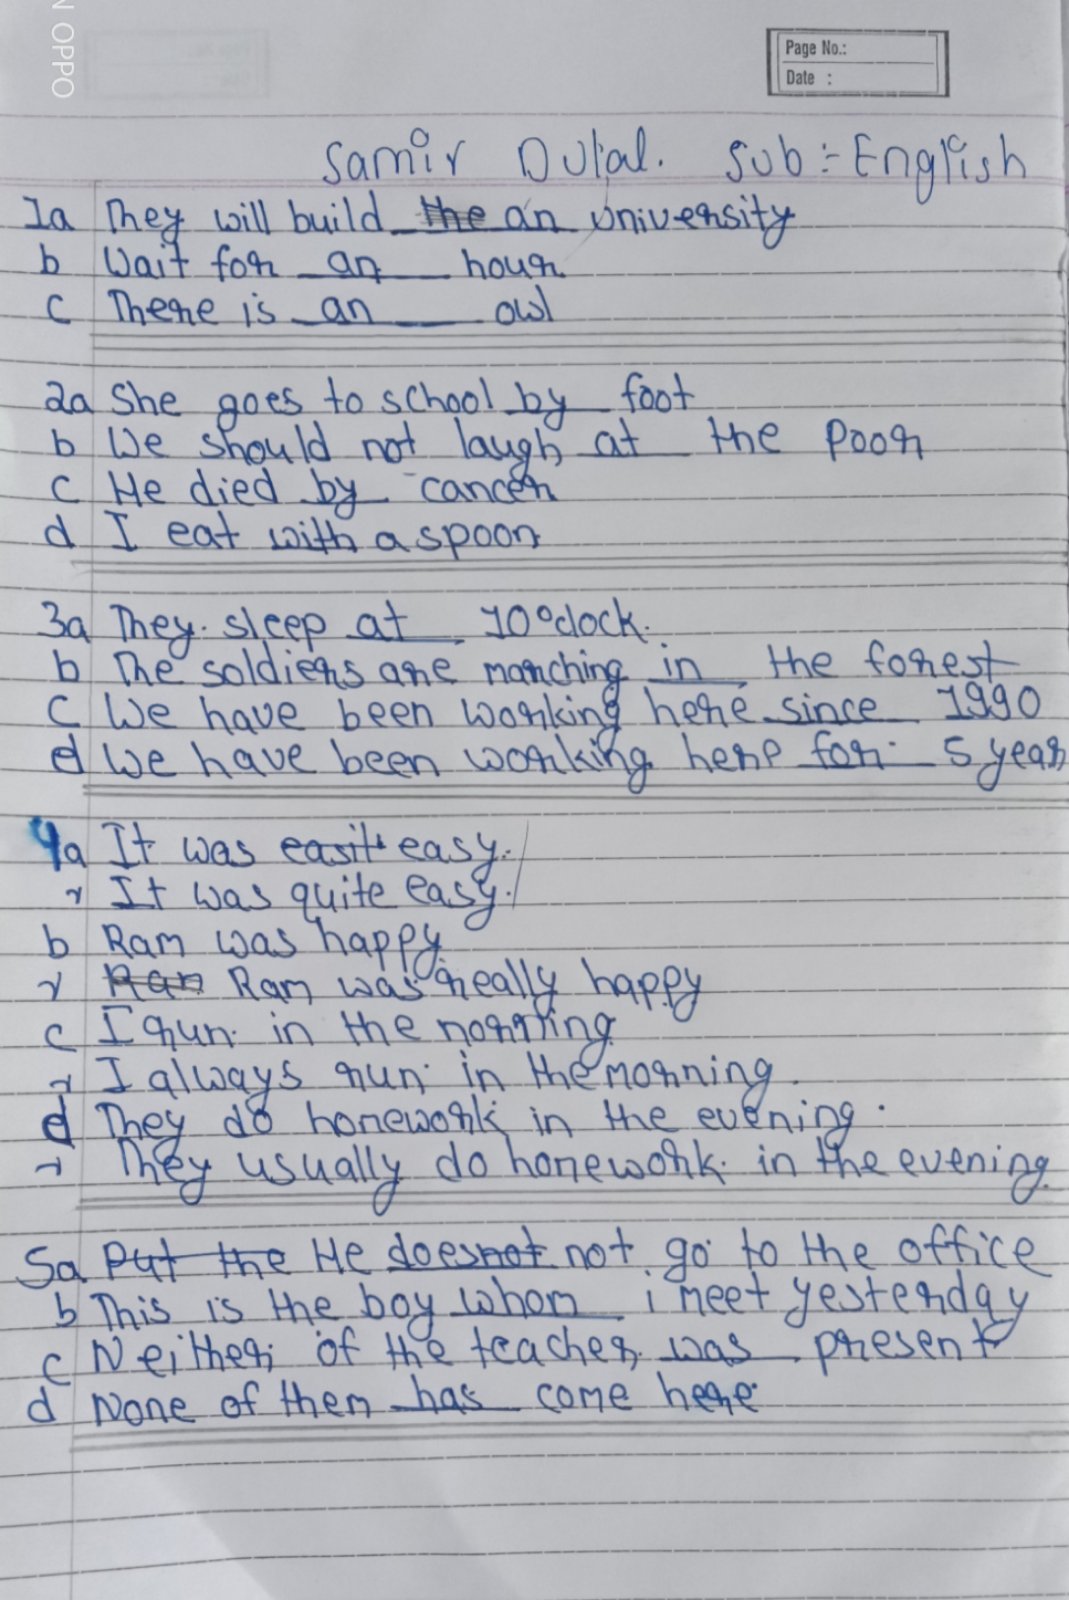 N OPPO
Page No.:
Date :
Samir Dulal. Sub :- English
1a They will build the an university
b Wait for an hour
c There is an owl
2a She goes to school by foot
b We should not laugh at the poor
c He died by cancer
d I eat with a spoon
3a They. sleep at 10 o'clock.
b The soldiers are marching in the forest
c We have been working here since 1990
d We have been working here for 5 year
4a It was easit easy.
It was quite easy.
b Ram was happy.
Ran Ram was really happy
c I run in the norning
I always run in the morning.
d They do honework in the evening.
They usually do honework in the evening.
5a Put the He doesnot not go to the office
b This is the boy whom i meet yesterday
c Neither of the teacher was present
d None of them has come here